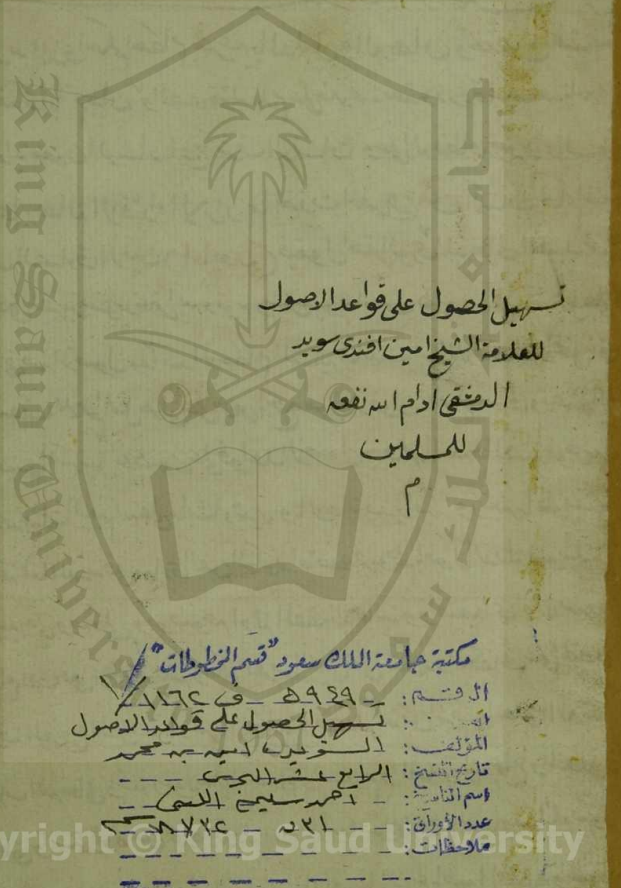 تسهيل الحصول على قواعد الاصول
للعلامة الشيخ امين افندى سويد
الدمشقى ادام الله نفعه
للمسلمين
م
مكتبة جامعة الملك سعود "قسم المخطوطات"
الرقم: ٥٩٤٩ ف ١١٦٢ / ١
العنوان: تسهيل الحصول على قواعد الاصول
المؤلف: السويد، امين بن محمد
تاريخ النسخ: الرابع عشر الهجرى
اسم الناسخ: احمد سليم
عدد الأوراق: ٣١
ملاحظات:
King Saud University
جامعة الملك سعود
Copyright © King Saud University